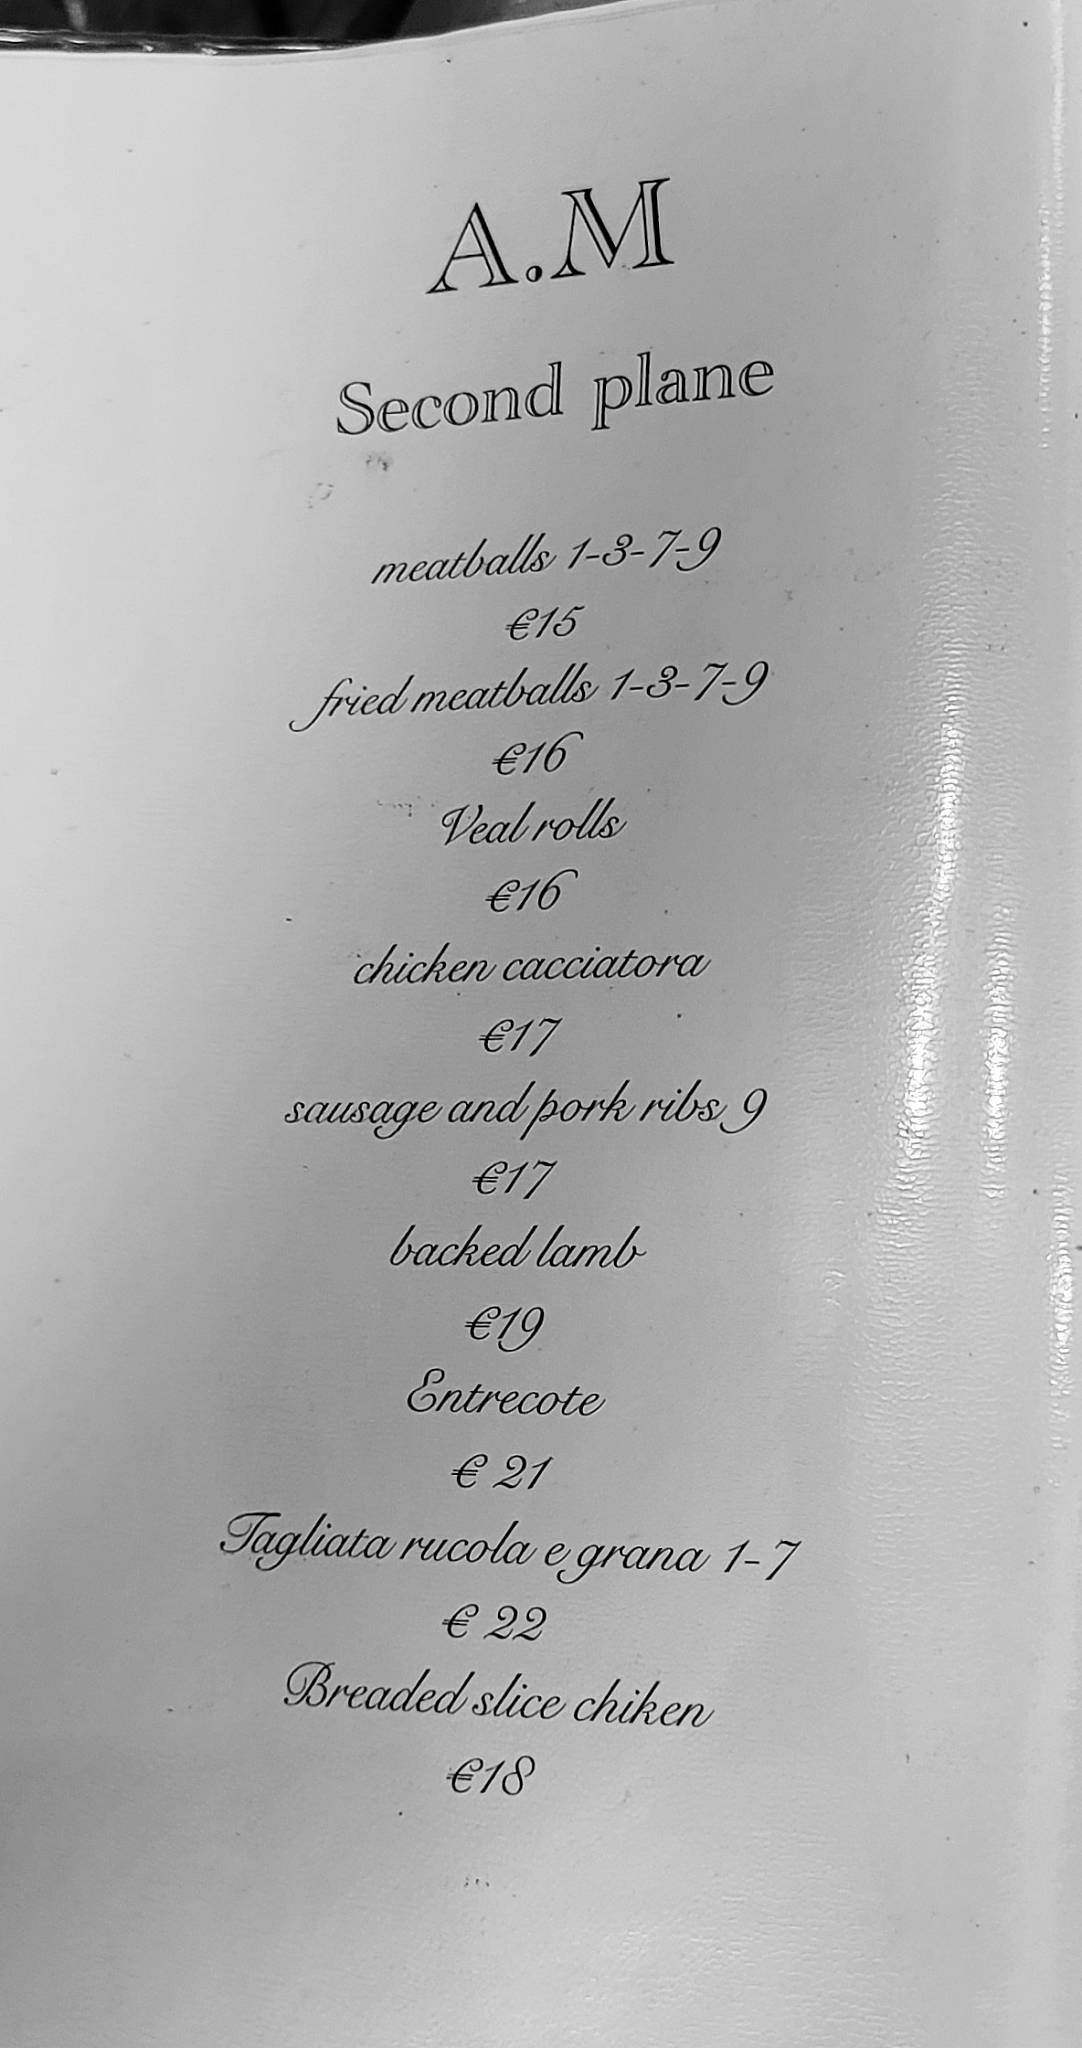 A.M
Second plane
meatballs 1-3-7-9
€15
fried meatballs 1-3-7-9
€16
Veal rolls
€16
chicken cacciatora
€17
sausage and pork ribs 9
€17
backed lamb
€19
Entrecote
€ 21
Tagliata rucola e grana 1-7
€ 22
Breaded slice chiken
€18